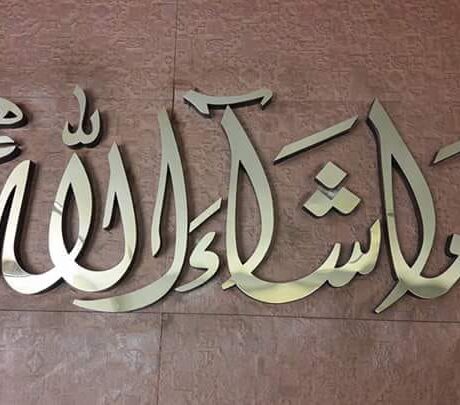 مَا شَآءَ اللّٰهُ